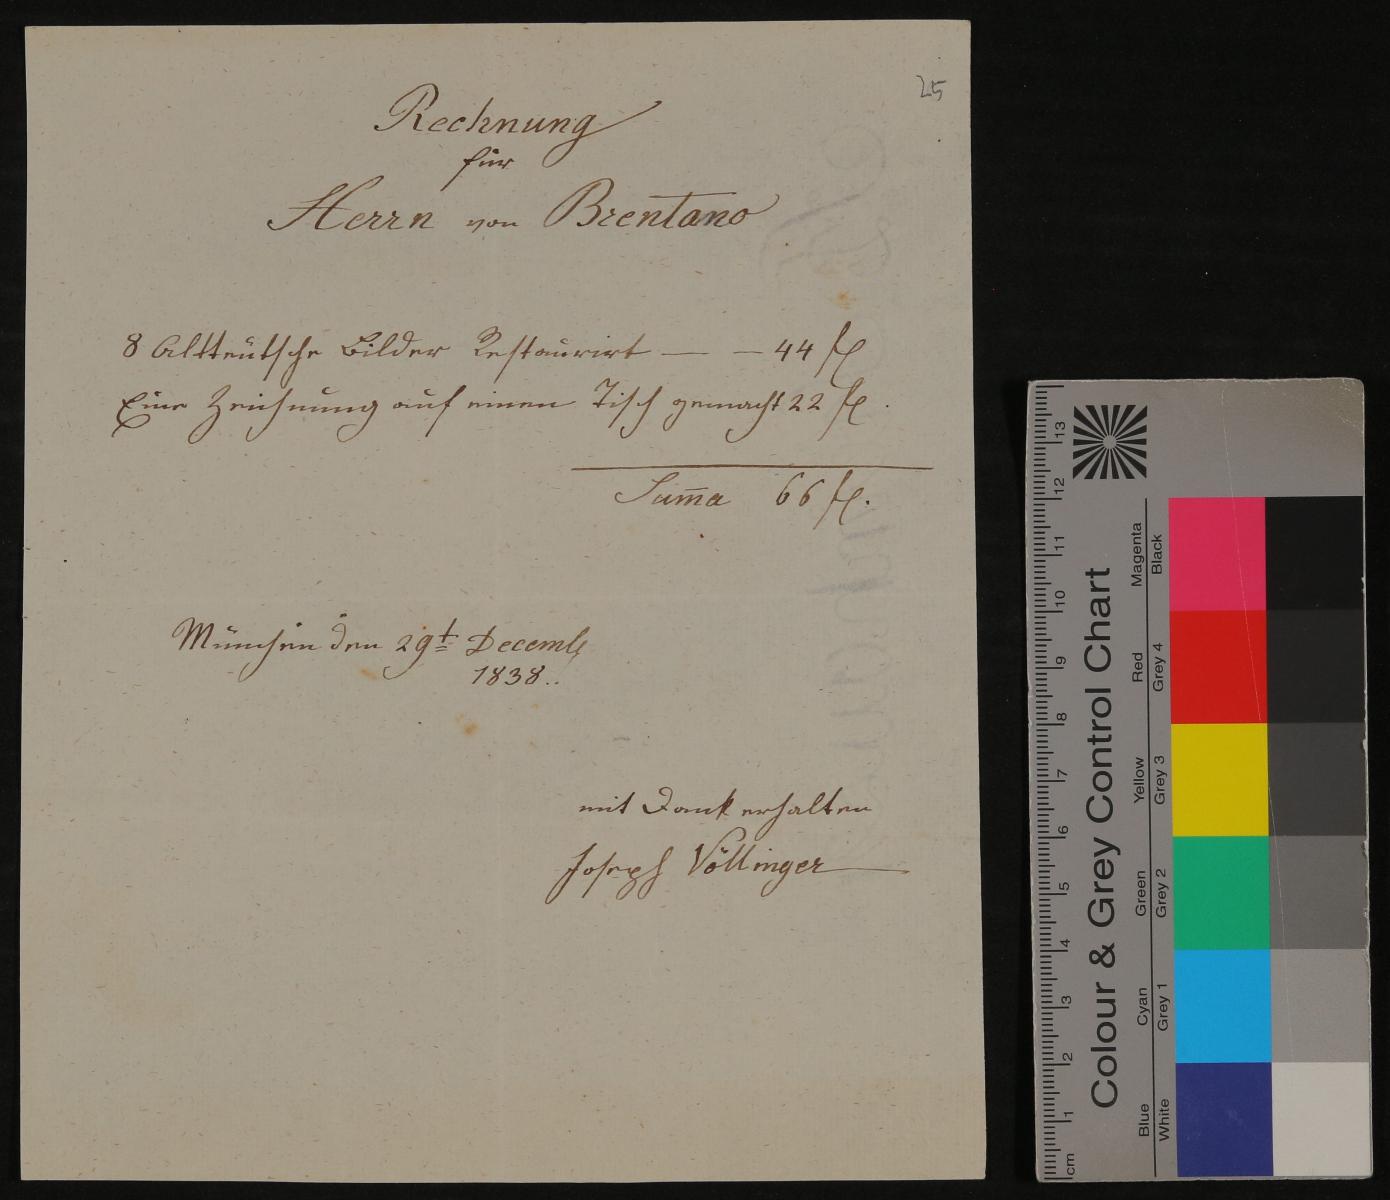 25
Rechnung
für
Herrn von Brentano
8 Altteütsche Bilder Restaurirt — — 44 fl
Eine Zeichnung auf einen Tisch gemacht 22 fl.
Sum̄a 66 fl.
München den 29t Decemb
1838..
mit Dank erhalten
Joseph Völlinger
Colour & Grey Control Chart
Blue Cyan Green Yellow Red Magenta
White Grey 1 Grey 2 Grey 3 Grey 4 Black
cm 1 2 3 4 5 6 7 8 9 10 11 12 13